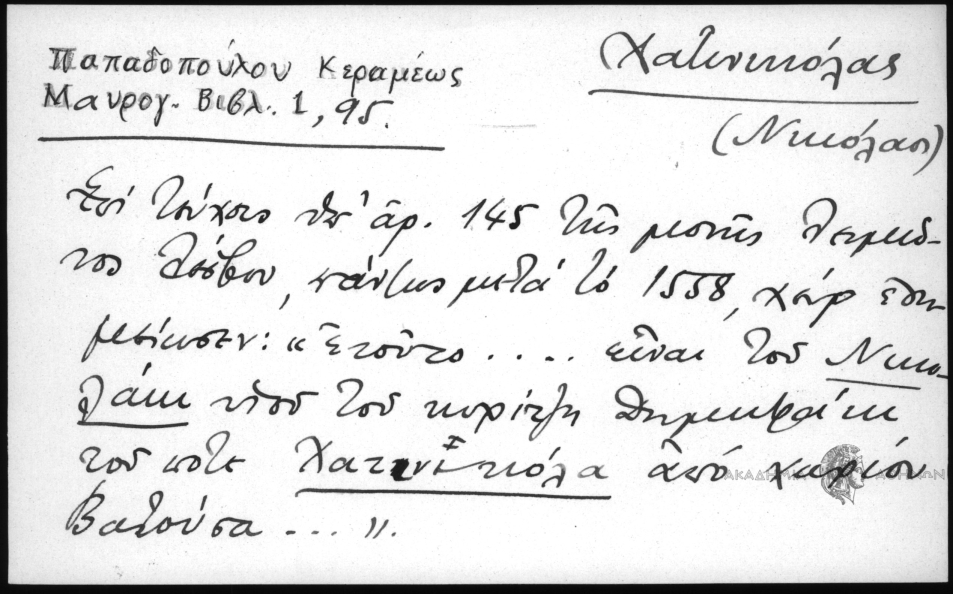 Παπαδοπούλου Κεραμέως
Μαυρογ. Βιβλ. 1, 95.
Χατινικόλας
(Νικόλας)
Ἐπί τεύχους ὑπ' ἀρ. 145 τῆς μονῆς Λειμῶ-
νος Λέσβου, πάντως μετά τό 1558, χείρ ἐση-
μείωσεν: « Ἐτοῦτο .... εἶναι τοῦ Νικο-
λάκι υἱοῦ τοῦ κυρίτζη Δημητράκι
τοῦ ποτε Χατινικόλα ἀπό χωρίον
Βατοῦσα ... ».
ΑΚΑΔΗΜΙΑ ΑΘΗΝΩΝ